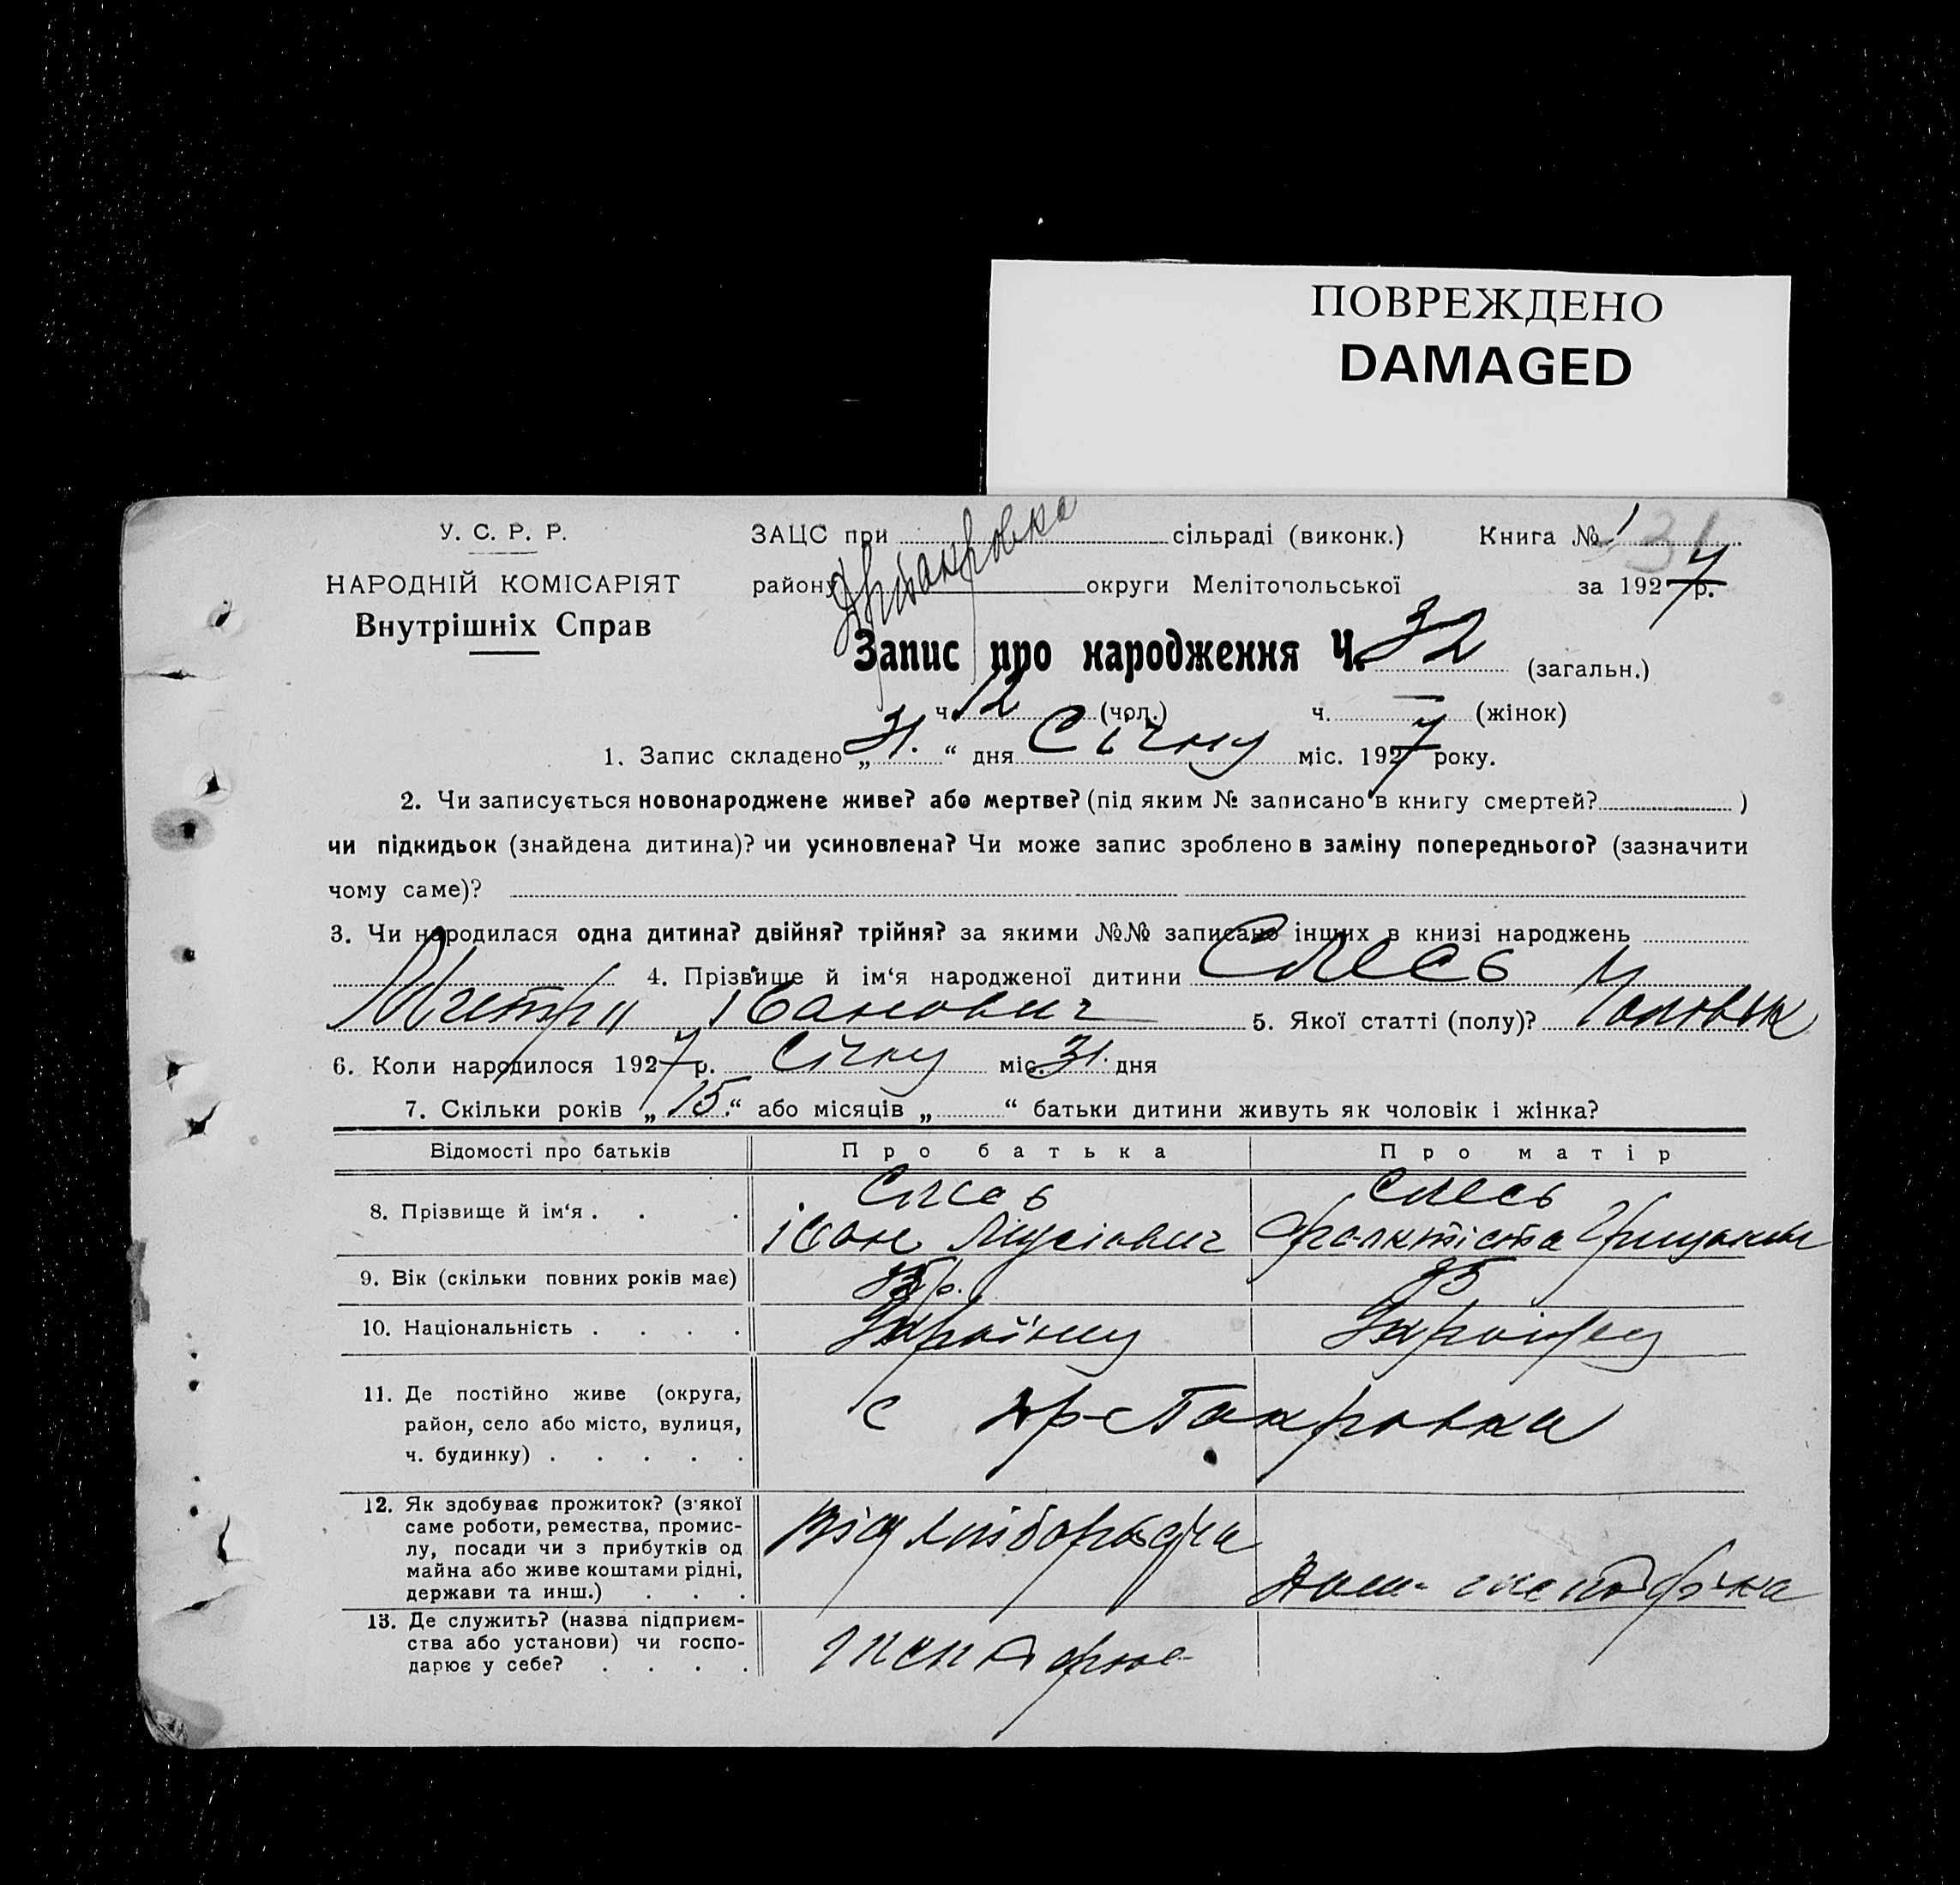 ПОВРЕЖДЕНО
DAMAGED
У. С. Р. Р.
НАРОДНІЙ КОМІСАРІЯТ
Внутрішніх Справ
ЗАЦС при сільраді (виконк.)
району округи Мелітопольської
Книга № 1 31
за 1927 р.
Запис про народження Ч. 32 (загальн.)
ч. 12 (чол.) ч. — (жінок)
1. Запис складено „31.“ дня Січну міс. 1927 року.
2. Чи записується новонароджене живе? або мертве? (під яким № записано в книгу смертей? )
чи підкидьок (знайдена дитина)? чи усиновлена? Чи може запис зроблено в заміну попереднього? (зазначити
чому саме)?
3. Чи народилася одна дитина? двійня? трійня? за якими №№ записано інших в книзі народжень
4. Прізвище й ім‘я народженої дитини Слесь
Івонович 5. Якої статті (полу)? Чоловік
6. Коли народилося 1927 р. Січну міс. 31. дня
7. Скільки років „15.“ або місяців „ “ батьки дитини живуть як чоловік і жінка?
Відомості про батьків Про батька Про матір
8. Прізвище й ім‘я . . . Слесь Слесь
івон
9. Вік (скільки повних років має) 35
10. Національність . . . .
11. Де постійно живе (округа,
район, село або місто, вулиця,
ч. будинку) . . . . . с
12. Як здобуває прожиток? (з‘якої
саме роботи, ремества, промис-
лу, посади чи з прибутків од
майна або живе коштами рідні,
держави та инш.) . . .
13. Де служить? (назва підприєм-
ства або установи) чи госпо-
дарює у себе? . . . .